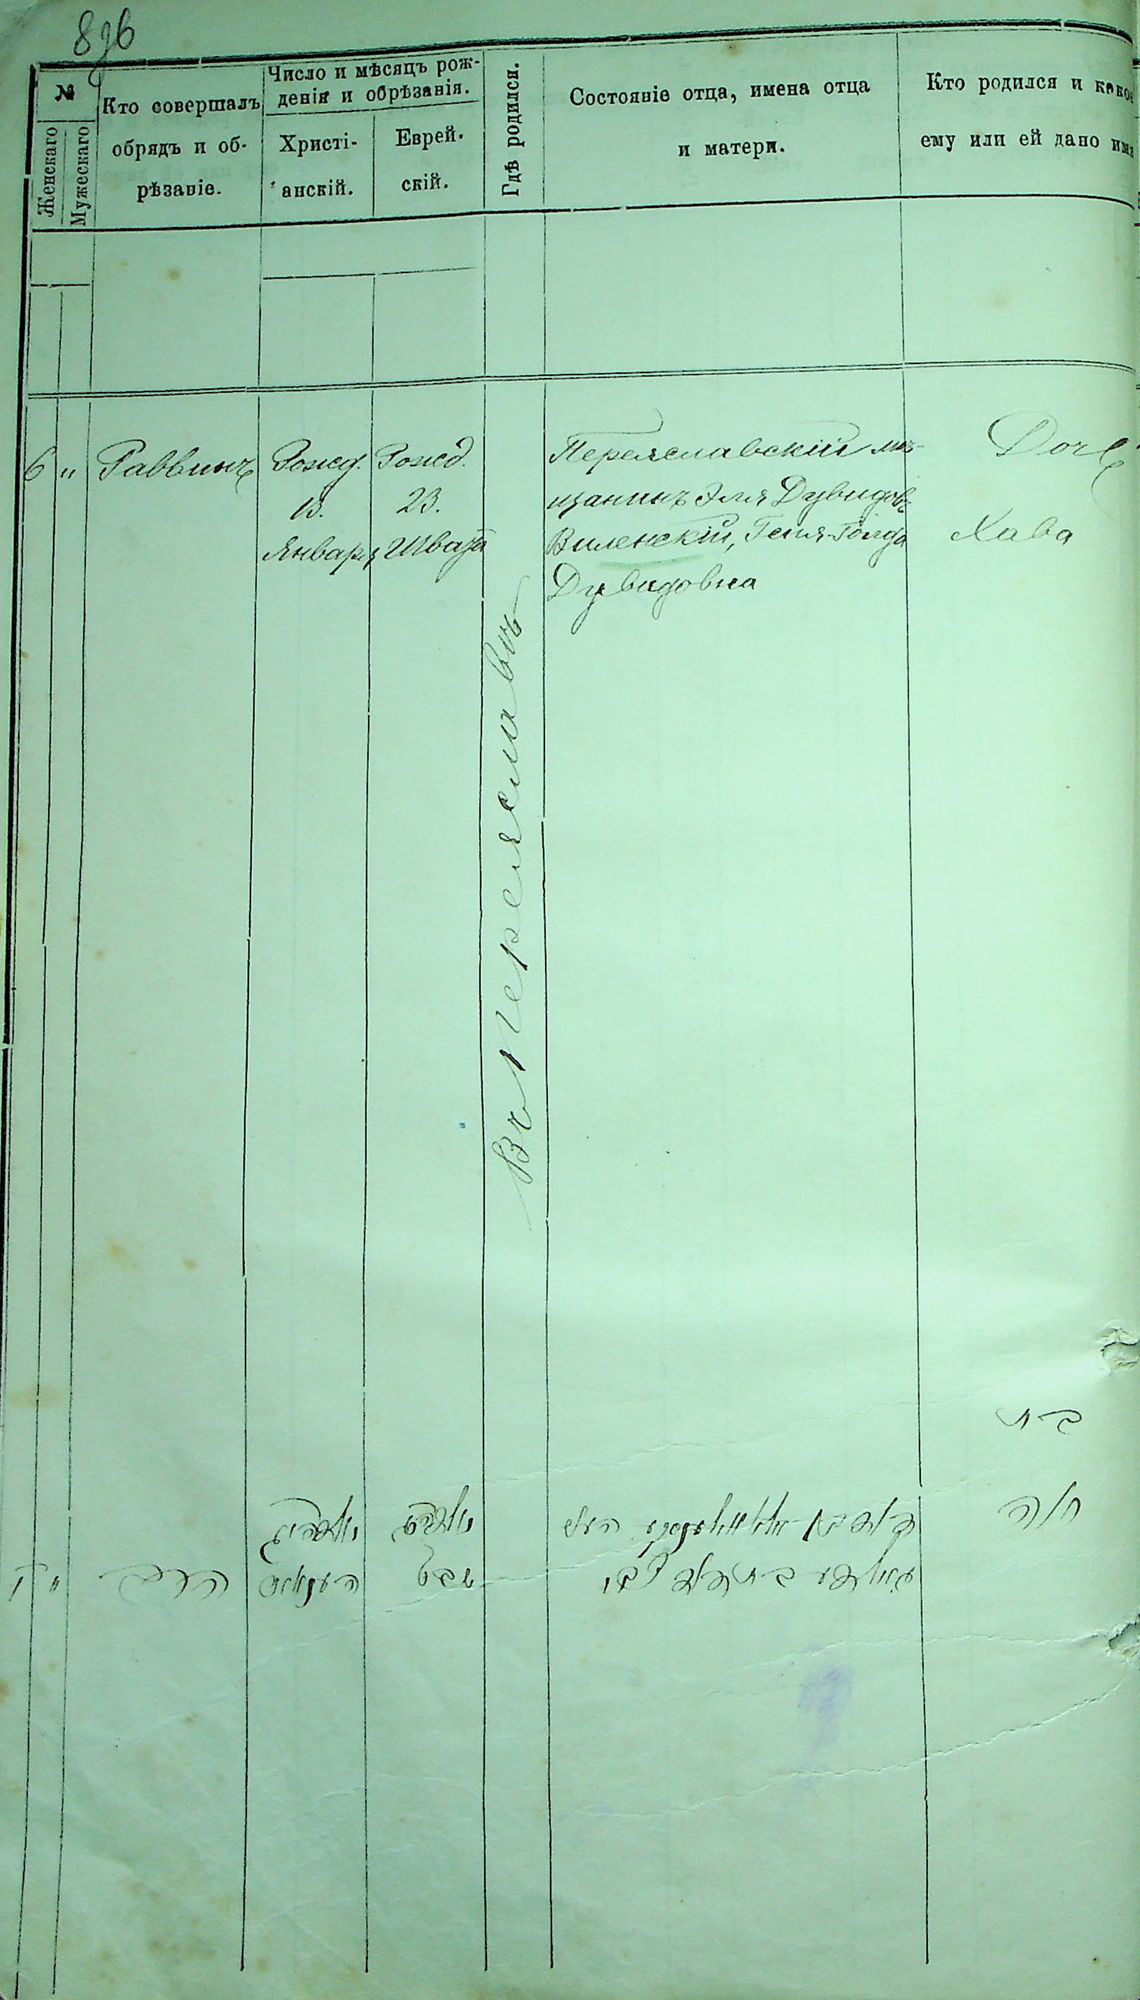 896
№
Женскаго
Мужескаго
Кто совершалъ
обрядъ и об-
рѣзаніе.
Число и мѣсяцъ рож-
денія и обрѣзанія.
Христі-
анскій.
Еврей-
скій.
Гдѣ родился.
Состояніе отца, имена отца
и матери.
Кто родился и какое
ему или ей дано имя
6 „ Раввинъ
Рожд.
13.
Января
Рожд.
23.
Швата
Въ Переяславѣ
Переяславскій мѣ-
щанинъ Эля Дувидовъ
Виленскій, Геня-Голда
Дувидовна
Дочь
Хава
בת
חוה
שבט
הרב